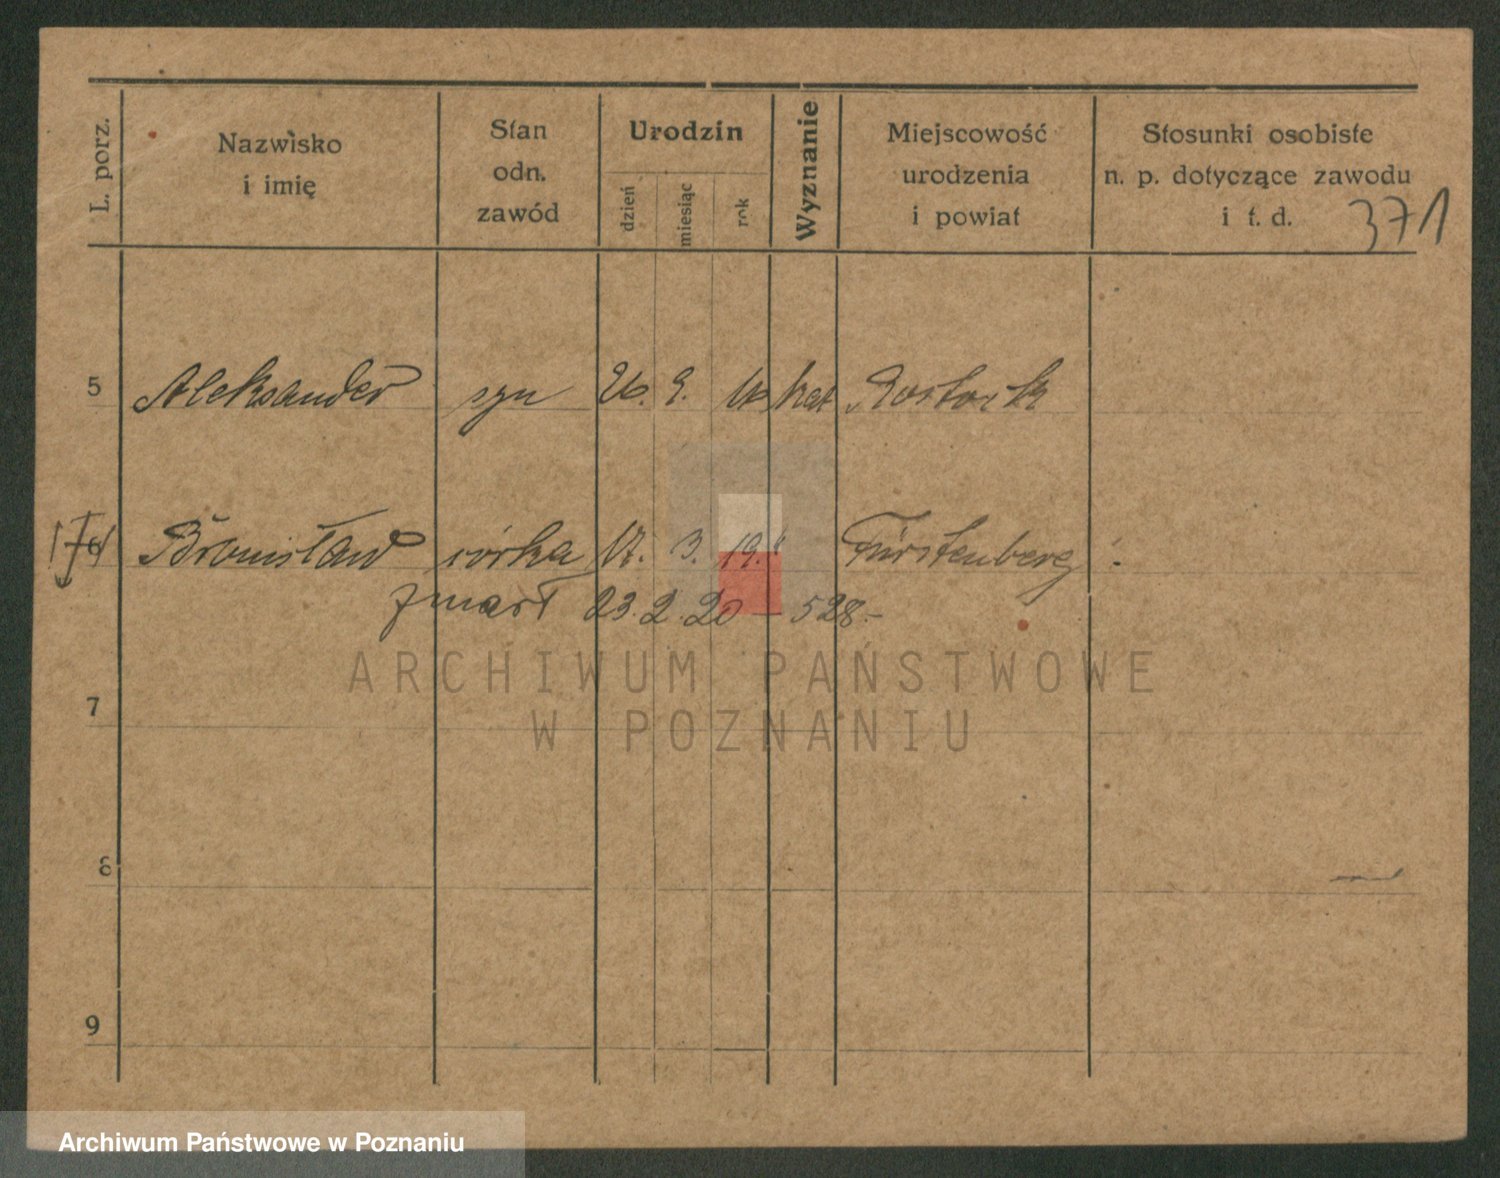 L. porz.
Nazwisko
i imię
Stan
odn.
zawód
Urodzin
dzień
miesiąc
rok
Wyznanie
Miejscowość
urodzenia
i powiat
Stosunki osobiste
n. p. dotyczące zawodu
i t. d.
371
5 Aleksander syn 26. 2. 16 kat Rostock
6 Bronisław córka 17. 3. 19. " Fürstenberg
zmarł 23.2.20 – 528.–
7
8
9
ARCHIWUM PAŃSTWOWE
W POZNANIU
Archiwum Państwowe w Poznaniu